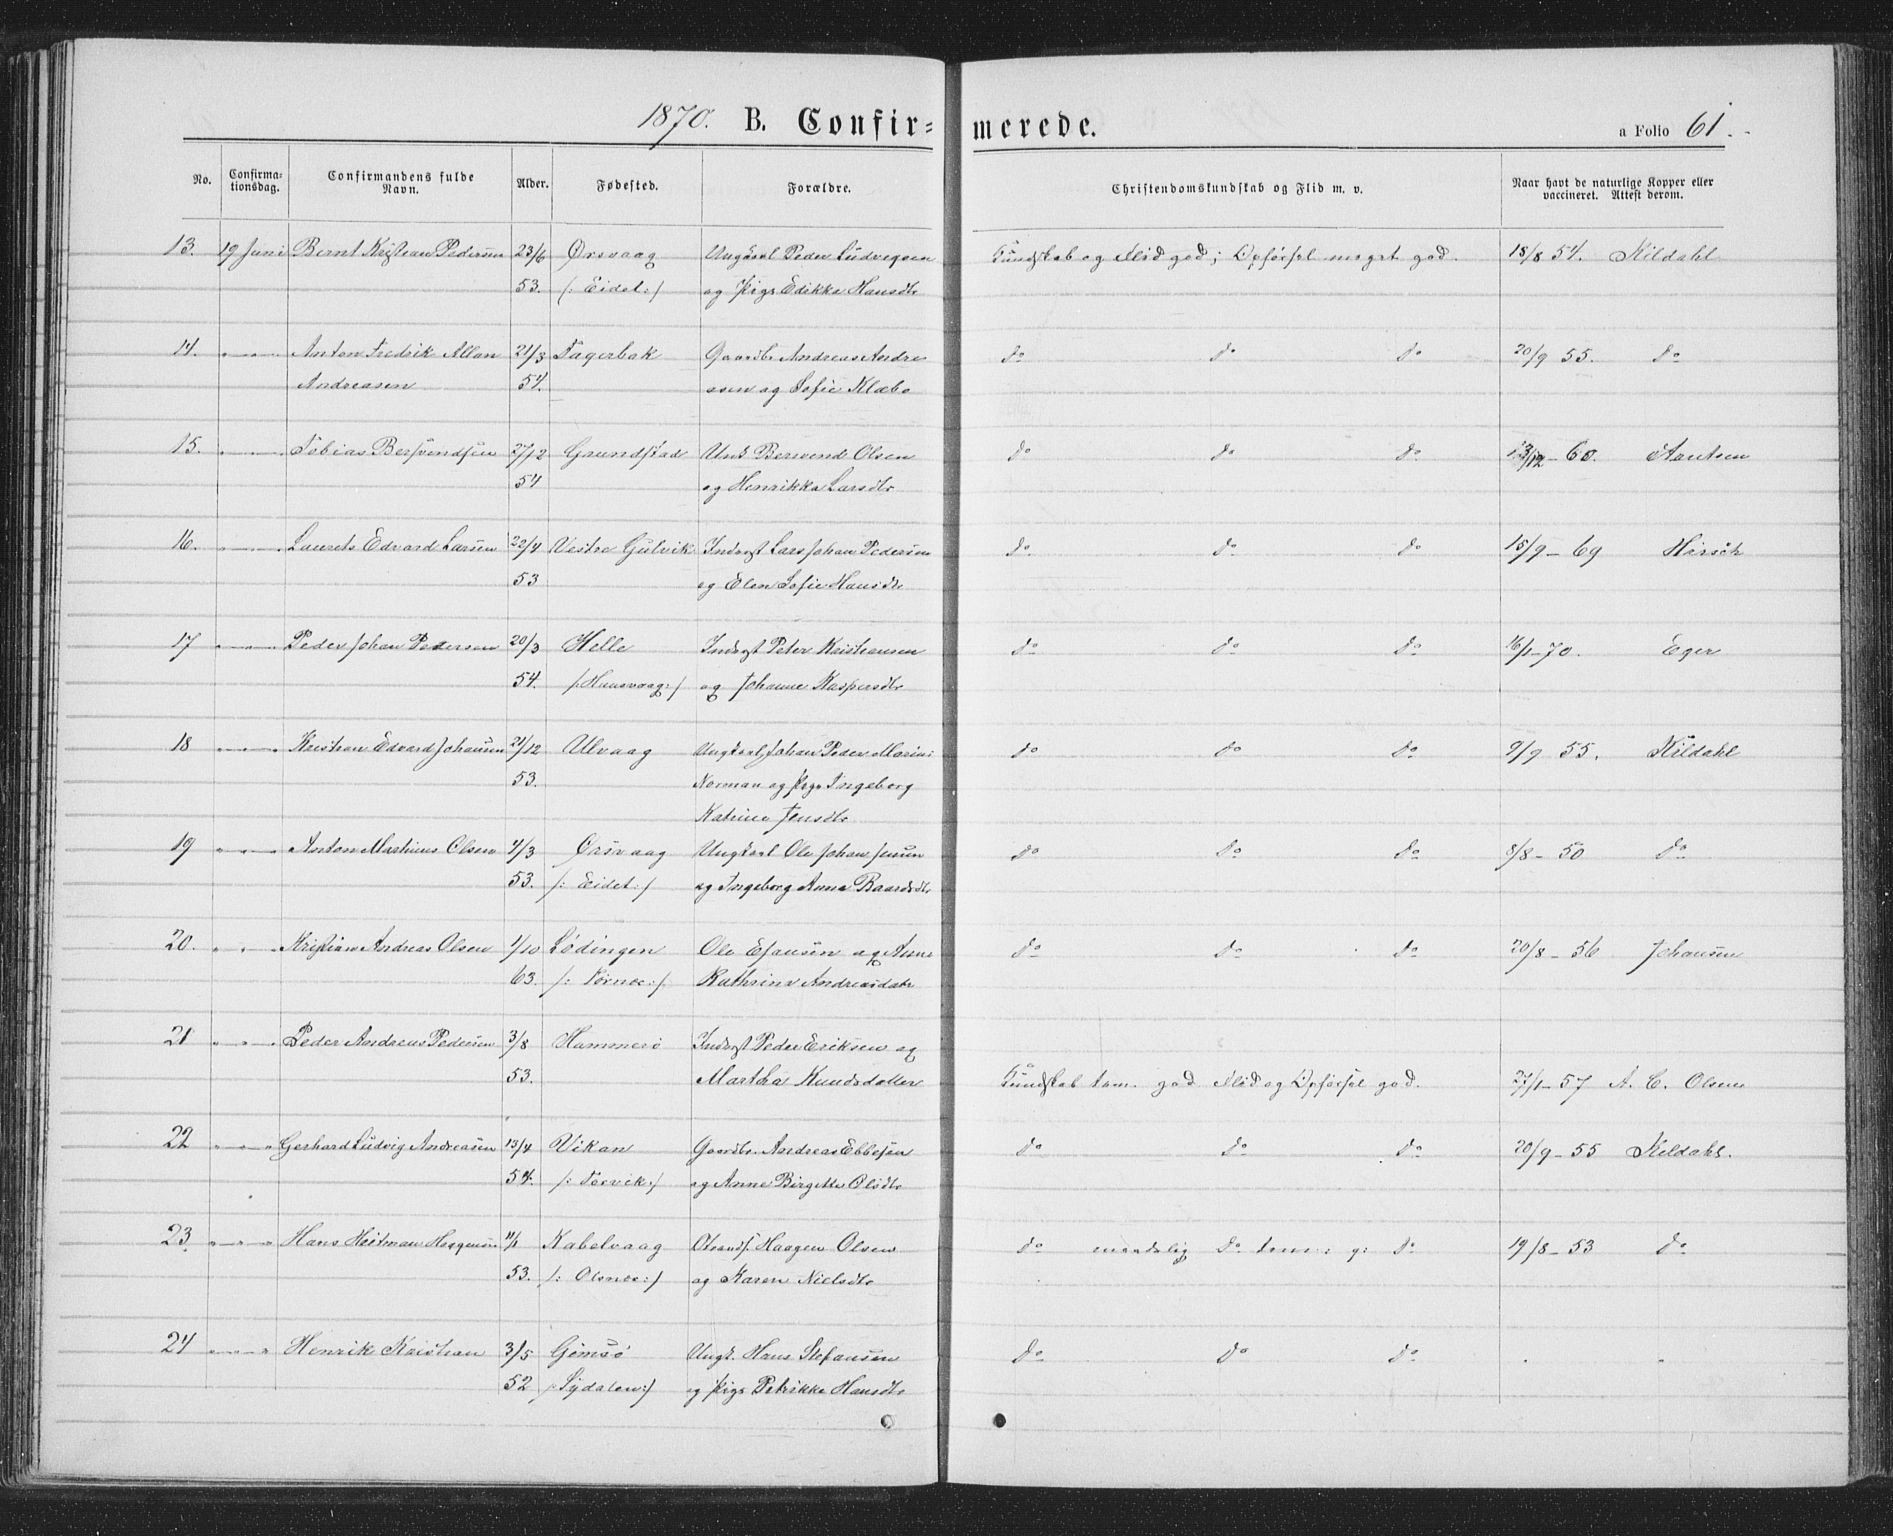 1870. B. Confir= merede. a Folio 61.
No. Confirma-tionsdag. Confirmandens fulde Navn. Alder. Fødested. Forældre. Christendomskundskab og Flid m. v. Naar havt de naturlige Kopper eller vaccineret. Attest derom.
13. 19 Juni Bernt Kristian Pedersen 23/6 Ørsvaag Ungkarl Peder Ludvigsen Kundskab og Flid god; Opførsel meget god. 18/8 54. Kildahl
53. /: Eidet:/ og Pige Edikke Hansdtr
14. " " Anton Fredrik Allan 21/3 Fagerbak Gaardbr Andreas Andre do do do 20/9 55. do
Andreasen 54. asen og Sofie Klæbo
15. " " Tobias Bersvendsen 27/12 Grundstad Inds Bersvend Olsen do do do 13/12 - 60. Aantsen
54 og Henrikka Larsdtr
16. " " Laurits Edvard Larsen 22/4 Vestre Gulvik Inderst Lars Johan Pedersen do do do 15/9 - 69 Hirsch
53 og Elen Sofie Hansdtr
17 " " Peder Johan Pedersen 20/3 Helle Inderst Peter Kristensen do do do 16/1 - 70. Eger
54. /:Hunsvaag:/ og Johanne Kaspersdtr
18 " " Kristian Edvard Johansen 21/12 Ulvaag Ungkarl Johan Peder Marini do do do 9/9 55. Kildahl
53. Norman og Pige Ingeborg
Katrine Jensdtr
19 " " " Anton Martinus Olsen 4/3 Ørsvaag Ungkarl Ole Johan Jensen do do do 8/8 - 50 do
53. /: Eidet:/ og Ingeborg Anna Baardsdtr
20. " " Kristian Andreas Olsen 1/10 Lødingen Ole Esausen og Anne do do do 20/8 - 56 Johansen
63. /: :/ Kathrina Andreasdatr
21 " " Peder Andreas Pedersen 3/8 Hammerø Inderst Peder Eriksen og
53. Martha Knudsdatter Kundskab tem. god Flid og Opførsel god. 27/1 - 57 A. C. Olsen
22 " " " Gerhard Ludvig Andreasen 13/4 Vikan Gaardbr. Andreas Ebbesen do do do 20/9 - 55 Kildahl.
54. /: Torvik:/ og Anne Birgitte Olsdtr
23 " " " Hans Heitman Haagensen 11/1 Kabelvaag Strands. Haagen Olsen do maadelig do tem: g: do 19/8 - 53 do
53. /: Olsnes:/ og Karen Nielsdtr
24 " " " Henrik Kristian 3/5 Gimsø Ungk. Hans Stefansen do do do " "
52 /: Sydalen:/ og Pige Petrikke Hansdtr